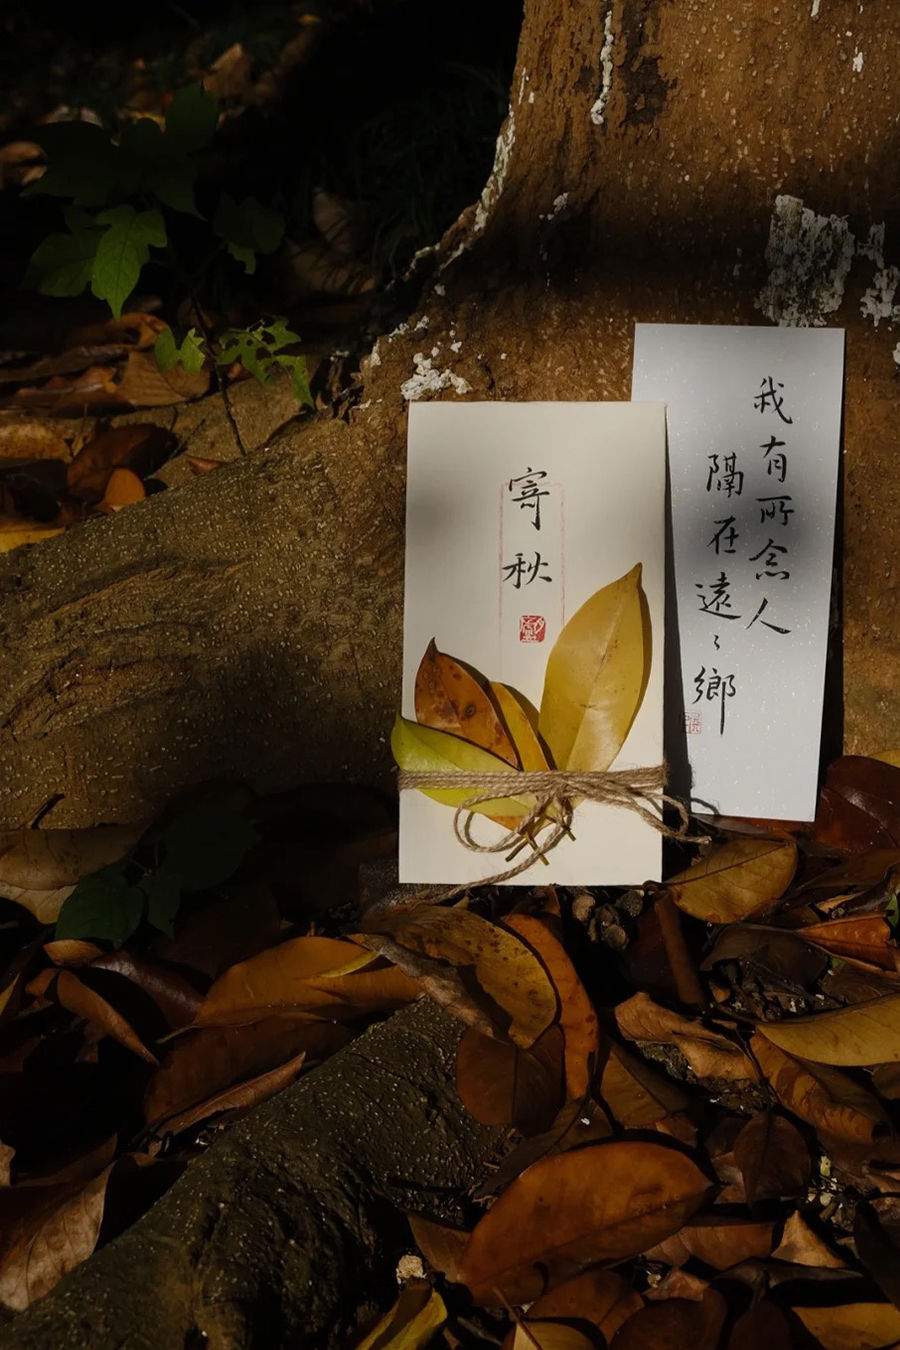 寄秋
我有所念人
隔在遠〻鄉